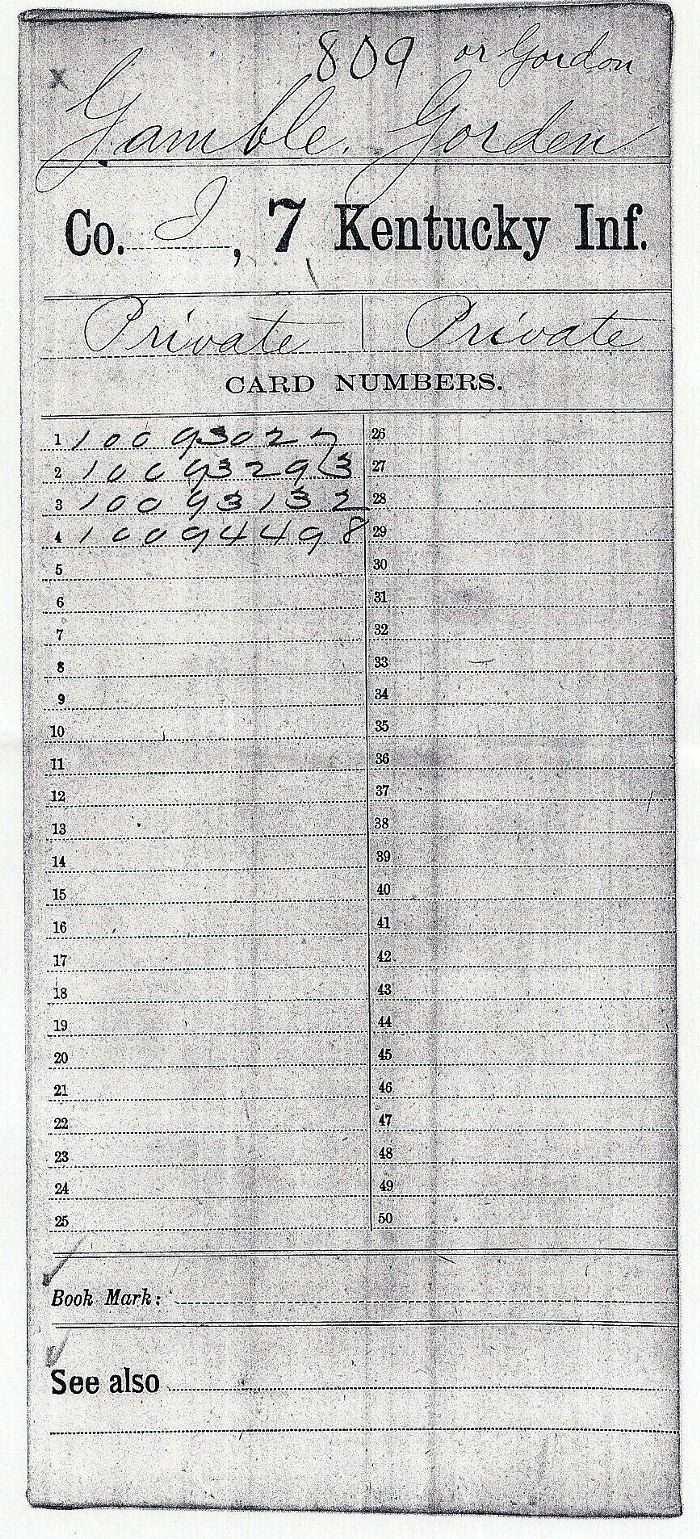 x 809 or Gordon
Gamble, Gorden
Co. I, 7 Kentucky Inf.
Private Private
CARD NUMBERS.
1 10093027 26
2 10093293 27
3 10093132 28
4 10094498 29
5 30
6 31
7 32
8 33
9 34
10 35
11 36
12 37
13 38
14 39
15 40
16 41
17 42
18 43
19 44
20 45
21 46
22 47
23 48
24 49
25 50
Book Mark:
See also